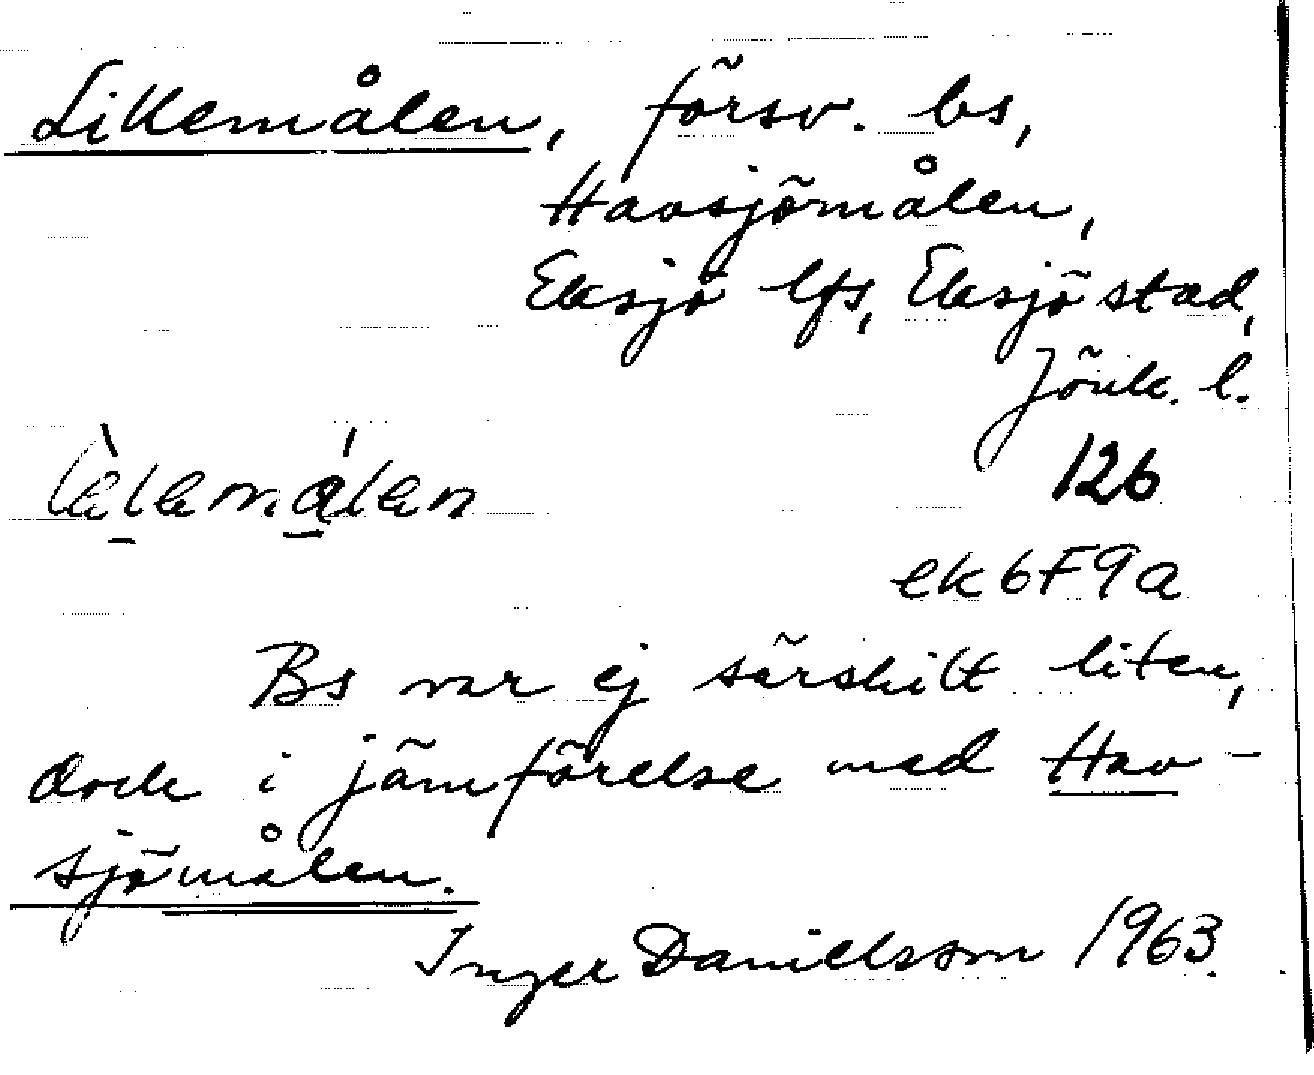 Lillemålen, försv. bs,
Havsjömålen,
Eksjö lfs, Eksjö stad,
Jönk. l.
126
ek6F9a
Bs var ej särskilt liten,
dock i jämförelse med Hav-
sjömålen.
Inger Danielsson 1963.